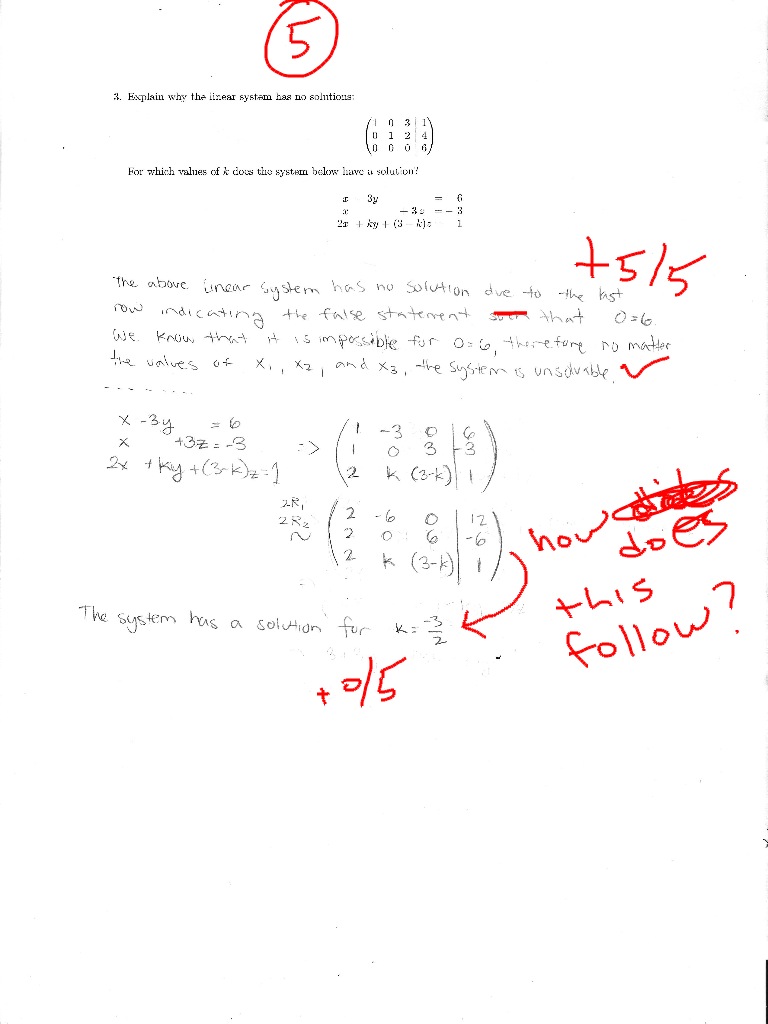 5
3. Explain why the linear system has no solutions:
1 0 3 | 1
0 1 2 | 4
0 0 0 | 6
For which values of k does the system below have a solution?
x 3y = 6
x + 3z = - 3
2x + ky + (3 k)z 1
+5/5
The above linear system has no solution due to the last
row indicating the false statement such that 0=6.
We know that it is impossible for 0=6, therefore no matter
the values of x₁, x₂, and x₃, the system is unsolvable.
x -3y = 6
x +3z = -3
2x + ky + (3-k)z = 1
=> 1 -3 0 | 6
1 0 3 | -3
2 k (3-k) | 1
2R₁
2R₂
~
2 -6 0 | 12
2 0 6 | -6
2 k (3-k) | 1
how does
this
follow?
The system has a solution for k = -3/2
+0/5